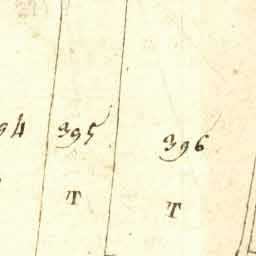 94 395 396
T T